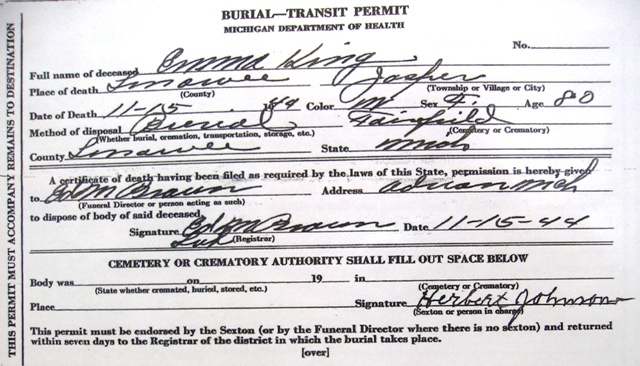 BURIAL—TRANSIT PERMIT
MICHIGAN DEPARTMENT OF HEALTH
No.
Full name of deceased Emma King
Place of death Lenawee Jasper
(County) (Township or Village or City)
Date of Death 11-15 1944 Color W Sex F. Age 80
Method of disposal Burial Fairfield
(Whether burial, cremation, transportation, storage, etc.) (Cemetery or Crematory)
County Lenawee State Mich
A certificate of death having been filed as required by the laws of this State, permission is hereby given
to Ed M Braun Address Adrian Mich
(Funeral Director or person acting as such)
to dispose of body of said deceased.
Signature Ed M Braun Date 11-15-44
(Registrar)
CEMETERY OR CREMATORY AUTHORITY SHALL FILL OUT SPACE BELOW
Body was on 19 in
(State whether cremated, buried, stored, etc.) (Cemetery or Crematory)
Place Signature Herbert Johnson
(Sexton or person in charge)
This permit must be endorsed by the Sexton (or by the Funeral Director where there is no sexton) and returned
within seven days to the Registrar of the district in which the burial takes place.
[over]
THIS PERMIT MUST ACCOMPANY REMAINS TO DESTINATION